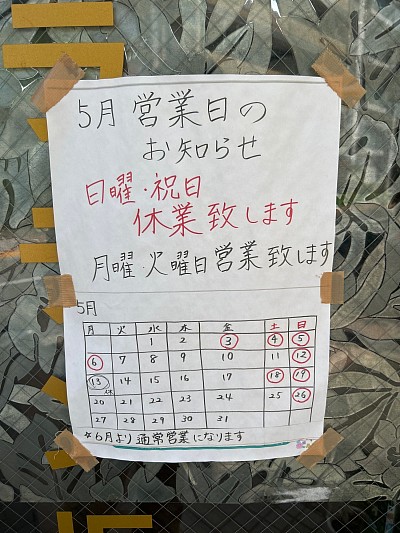 5月 営業日の
お知らせ
日曜・祝日
休業致します
月曜・火曜日営業致します
5月
月 火 水 木 金 土 日
1 2 3 4 5
6 7 8 9 10 11 12
13 14 15 16 17 18 19
20 21 22 23 24 25 26
27 28 29 30 31
☆6月より通常営業になります